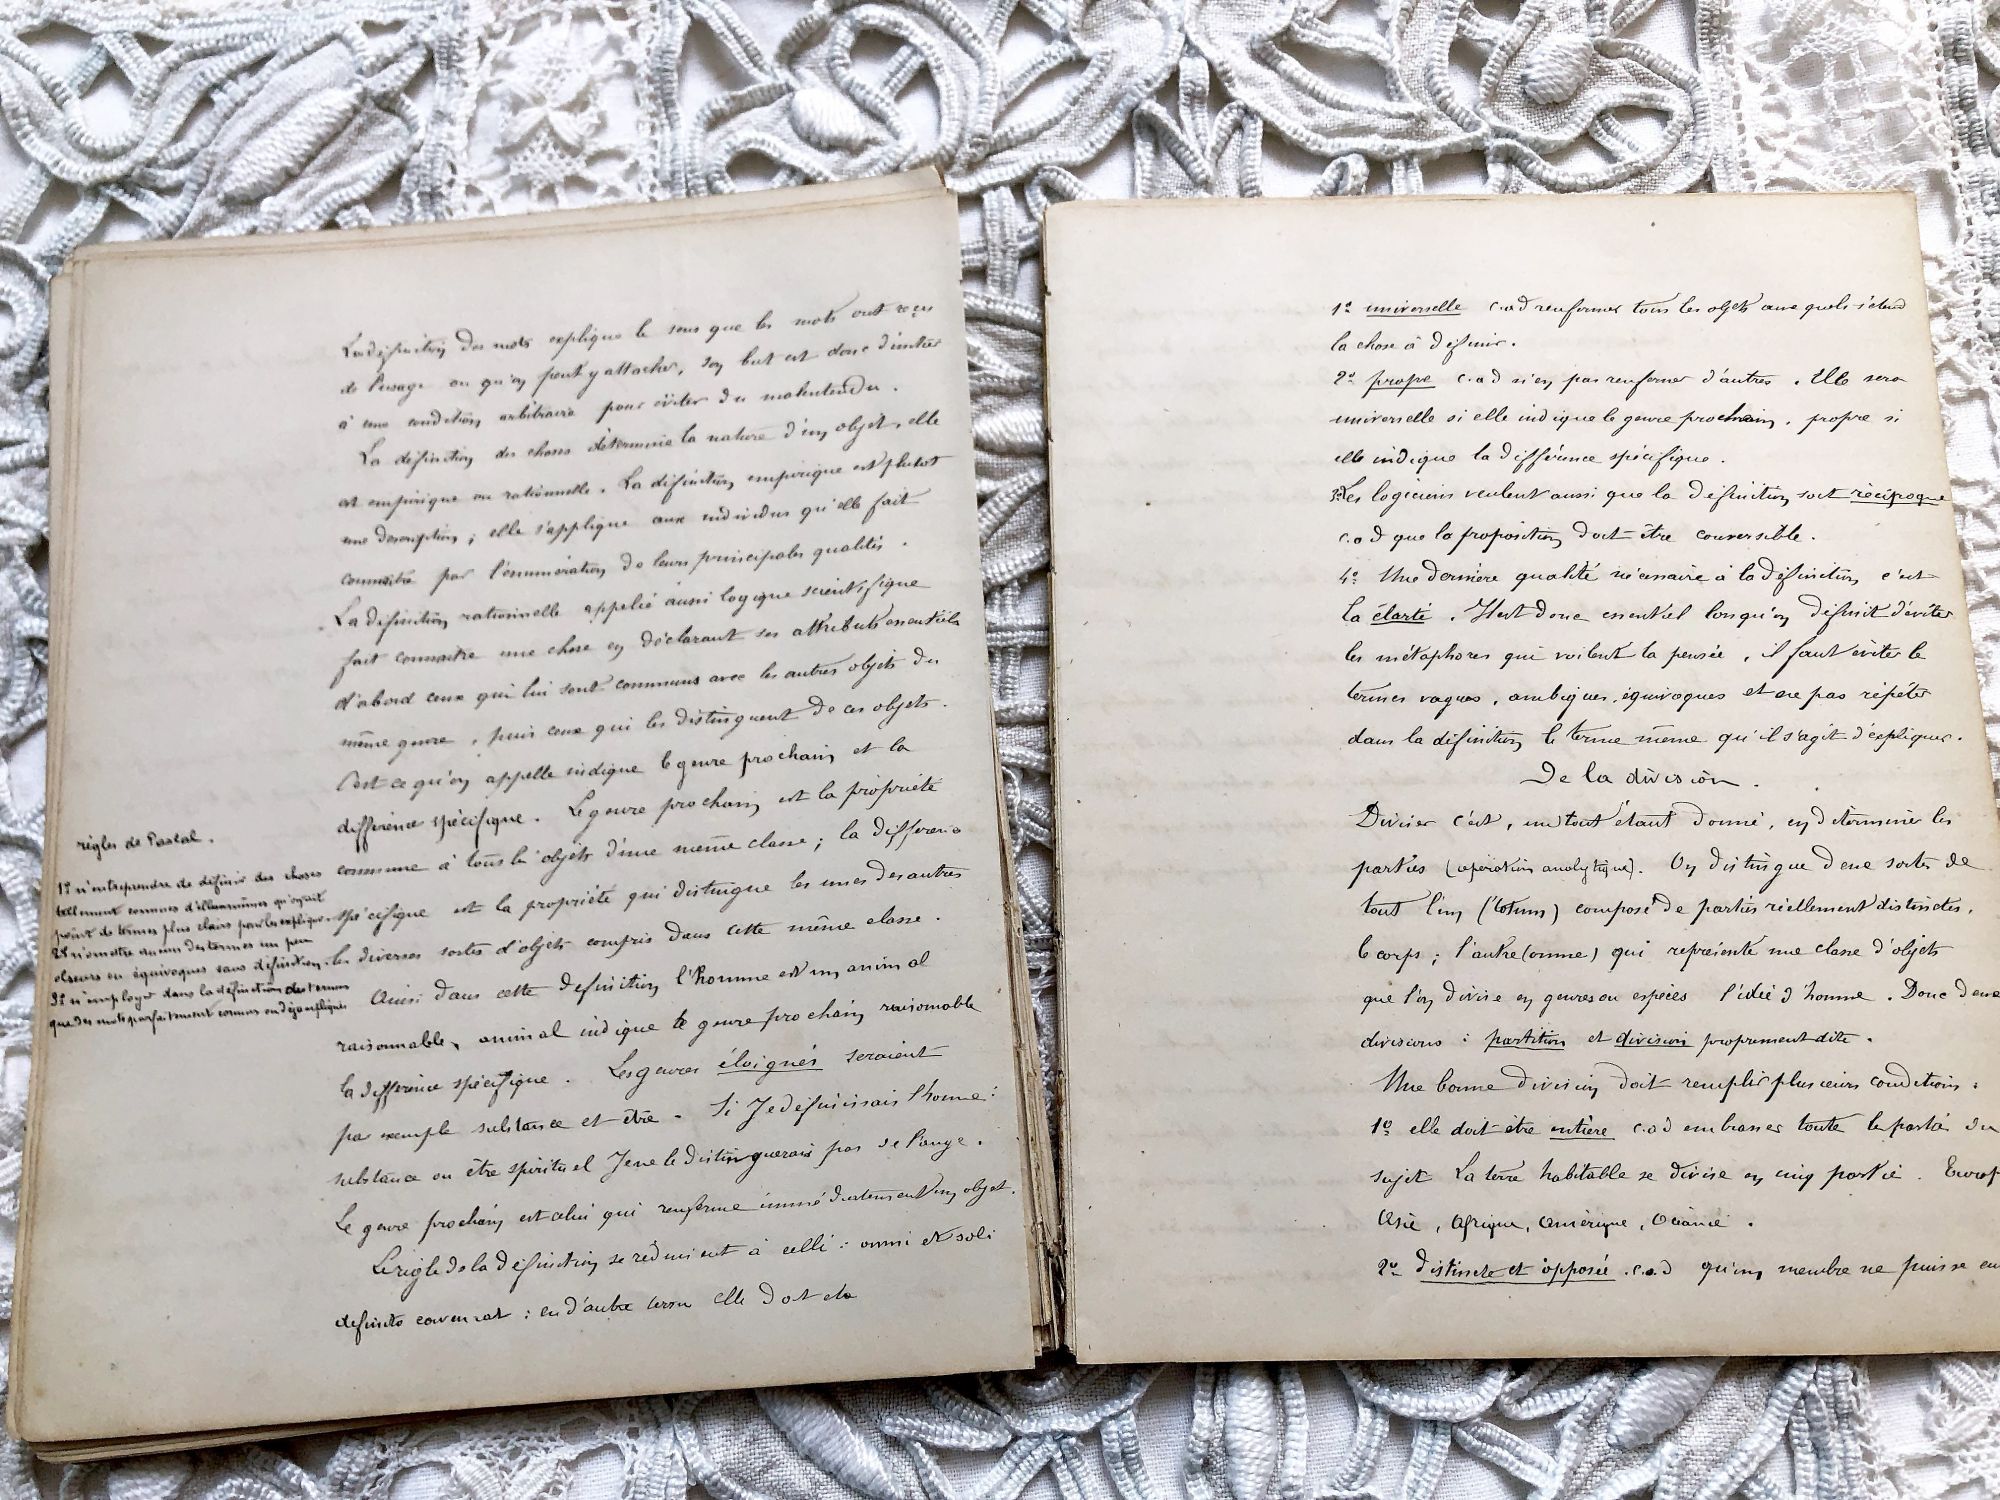 La définition des mots explique le sens que les mots ont reçu
de l'usage ou qu'on peut y attacher, son but est donc d'
à une condition arbitraire pour éviter du malentendu.
La définition des choses détermine la nature d'un objet, elle
est empirique ou rationnelle. La définition empirique est plutot
une description; elle s'applique aux individus qu'elle fait
connaître par l'énumération de leurs principales qualités.
La définition rationnelle appelée aussi logique scientifique
fait connaitre une chose en déclarant ses attributs essentiels
d'abord ceux qui lui sont communs avec les autres objets du
même genre, puis ceux qui les distinguent de ces objets.
C'est ce qu'on appelle indique le genre prochain et la
différence spécifique. Le genre prochain est la propriété
commune à tous les objets d'une même classe; la différence
spécifique est la propriété qui distingue les unes des autres
les diverses sortes d'objets compris dans cette même classe.
Ainsi dans cette définition l'homme est un animal
raisonnable, animal indique le genre prochain raisonnable
la différence spécifique. Les genres éloignés seraient
par exemple substance et être. Si Je définissais l'homme:
substance ou être spirituel Je ne le distinguerais pas de l'ange.
Le genre prochain est celui qui renferme immédiatement un objet.
Le règle de la définition se réduisent à celli: omni et soli
definito conveniat: en d'autre terme elle doit etre
règles de Pascal.
1º n'entreprendre de définir des choses
tellement connues d'elles mêmes qu'on ait
point de termes plus clairs pour les expliquer.
2º n'omettre aucun des termes un peu
obscurs ou équivoques sans définition.
3º n'employer dans la définition des termes
que des mots parfaitement connus ou déjà expliqués
1º universelle c.a.d renfermer tous les objets aux quels s'étend
la chose à définir.
2º propre c.a.d n'en pas renfermer d'autres. Elle sera
universelle si elle indique le genre prochain, propre si
elle indique la différence spécifique.
3º Les logiciens veulent aussi que la définition soit réciproque
c.a.d que la proposition doit être conversible.
4º Une dernière qualité nécessaire à la définition c'est
la clarté. Il est donc essentiel lorsqu'on définit d'éviter
les métaphores qui voilent la pensée, il faut éviter le
termes vagues, ambigues, équivoques et ne pas répéter
dans la définition le terme même qu'il s'agit d'expliquer.
De la division.
Diviser c'est, un tout étant donné, en déterminer les
parties (opération analytique). On distingue deux sortes de
tout l'un (totum) composé de parties réellement distinctes,
le corps; l'autre (omne) qui représente une classe d'objets
que l'on divise en genres ou espèces l'idée d'homme. Donc deux
divisions: partition et division proprement dite.
Une bonne division doit remplir plusieurs conditions:
1º elle doit être entière c.a.d embrasser toute le partie du
sujet La terre habitable se divise en cinq partie. Europ
Asie, Afrique, Amérique, Océanie.
2º distincte et opposée. c.a.d qu'un membre ne puisse en